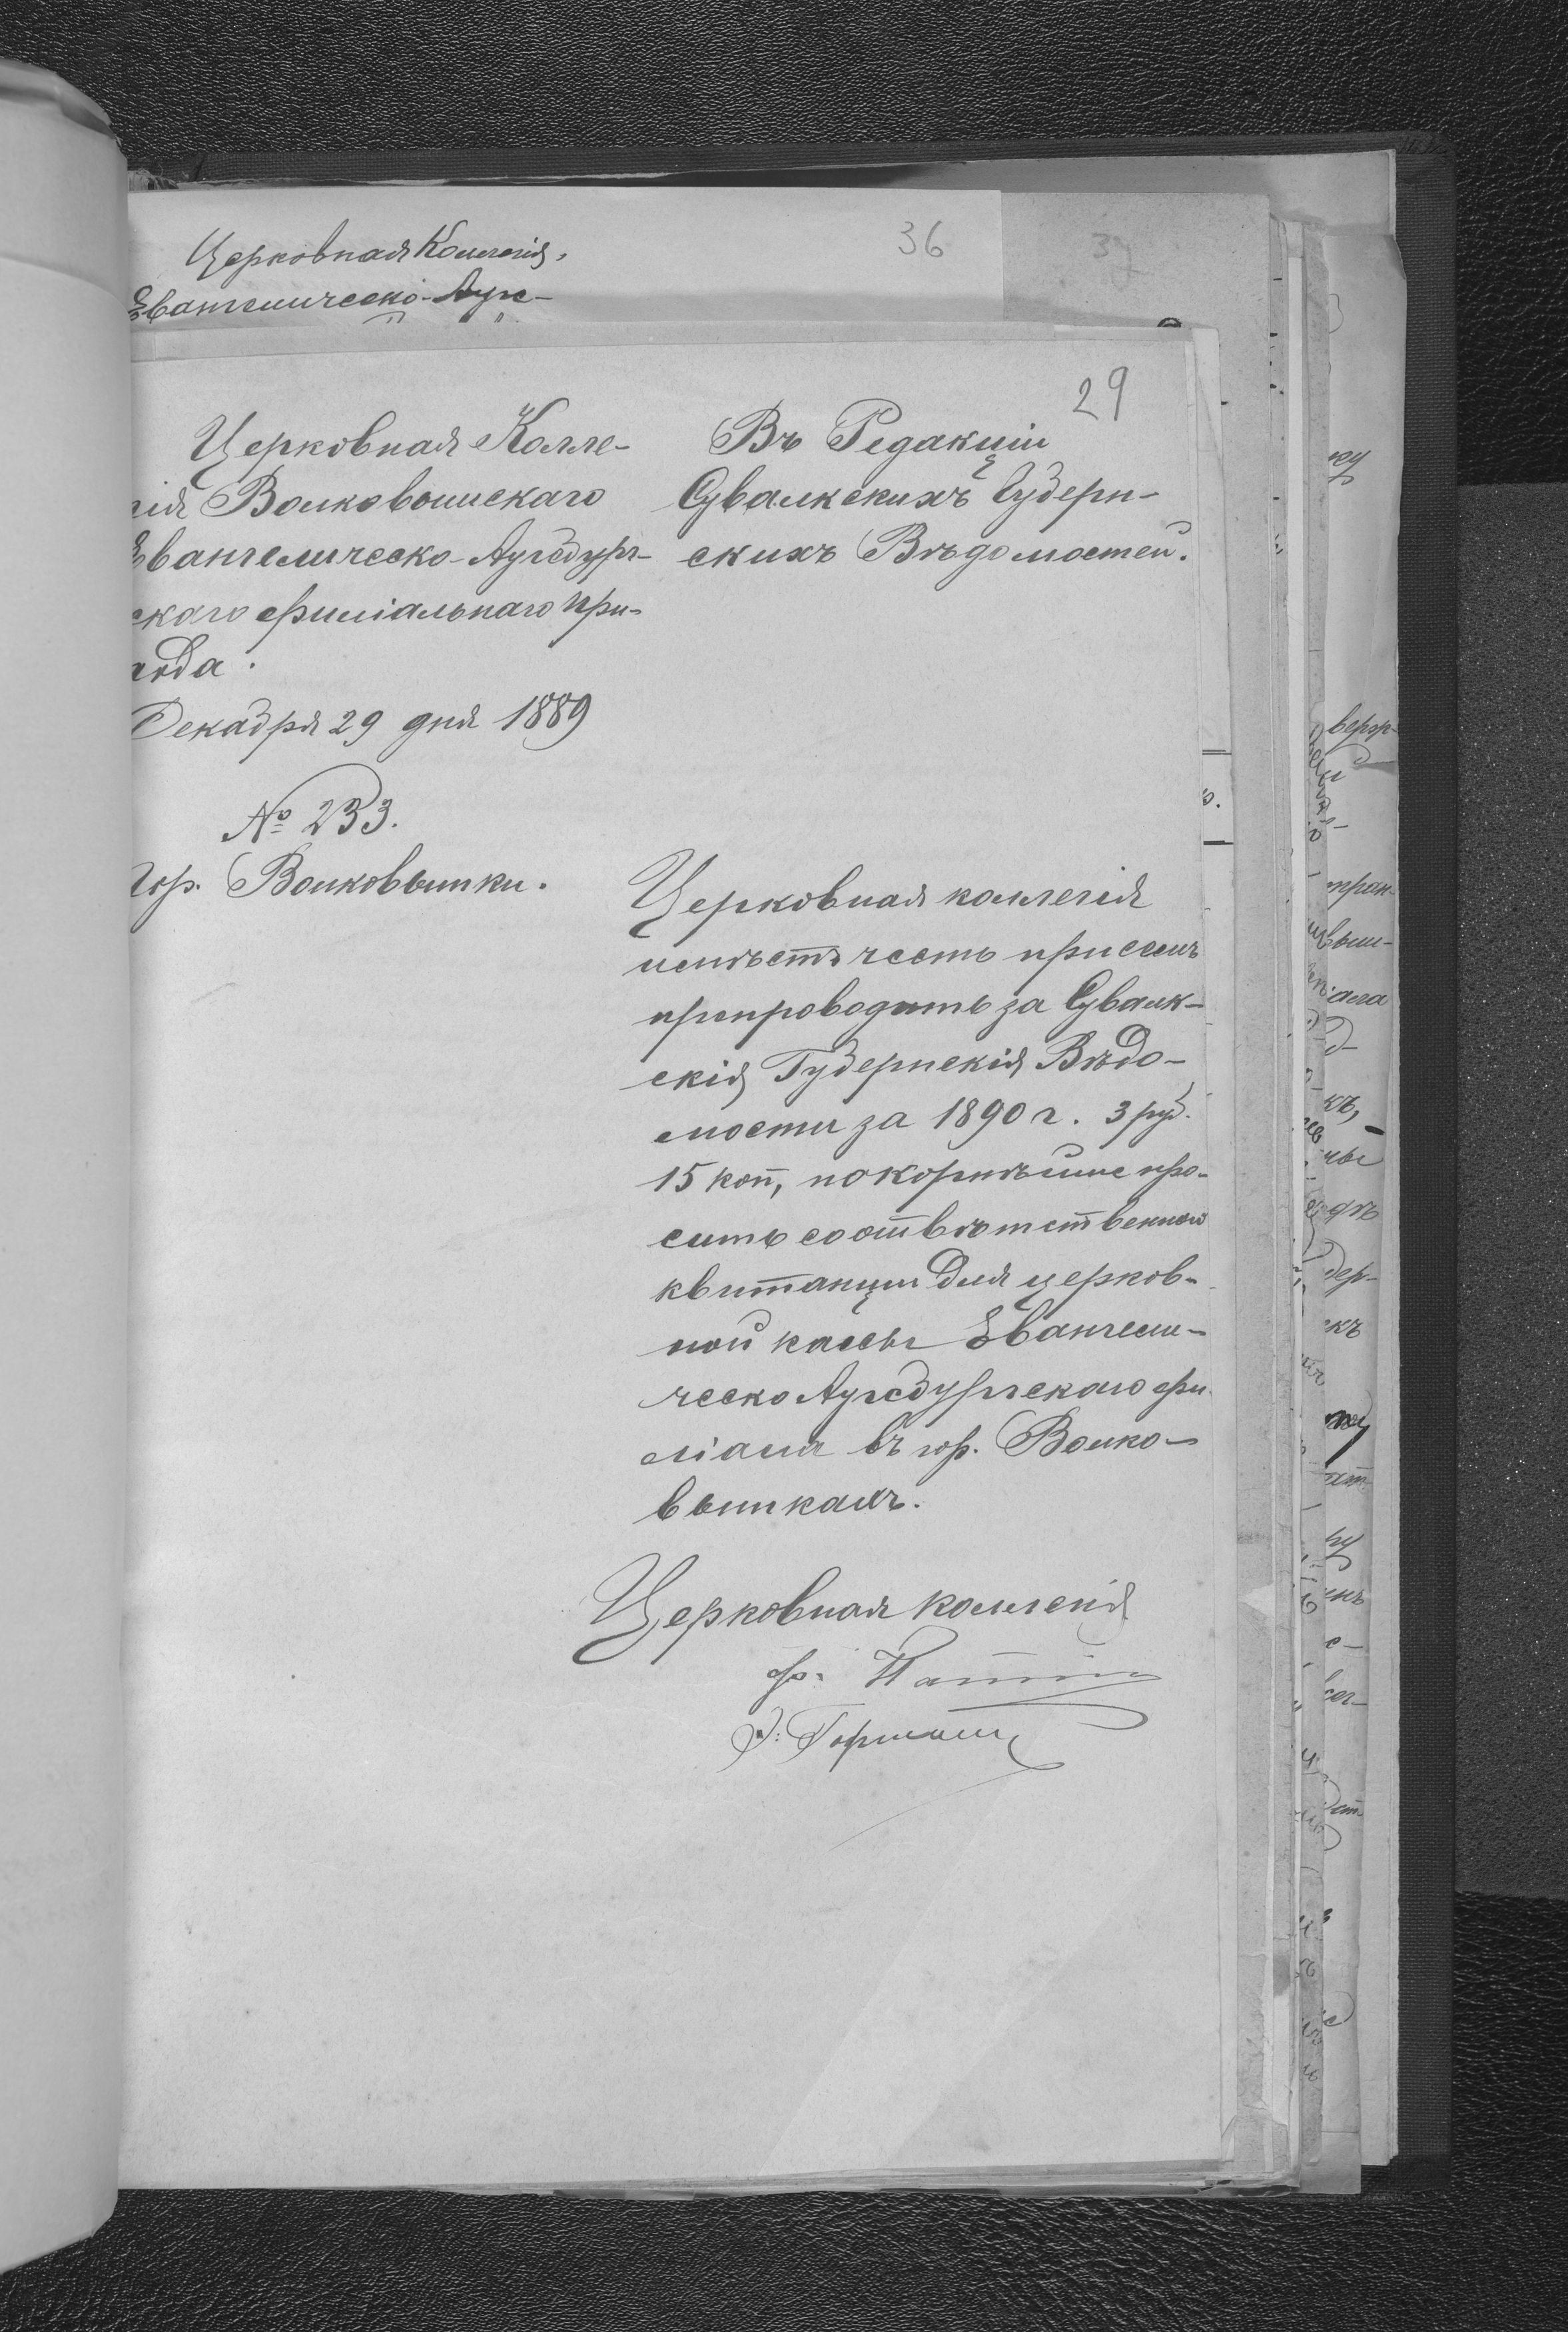 Церковная Коллегія,
Евангелическо-Ауг-
36
37
29
Церковная Колле-
гія Волковышскаго
Евангелическо-Аугсбург-
скаго филіальнаго при-
хода.
Декабря 29 дня 1889
№ 233.
гор. Волковышки.
Въ Редакціи
Сувалкскихъ Губерн-
скихъ Вѣдомостей.
Церковная коллегія
имѣетъ честь при семъ
препроводить за Сувалк-
скія Губернскія Вѣдо-
мости за 1890 г. 3 руб.
15 коп, покорнѣйше про-
сить соотвѣтственной
квитанціи для церков-
ной кассы Евангели-
ческо Аугсбургскаго фи-
ліала въ гор. Волко-
вышкахъ.
Церковная коллегія